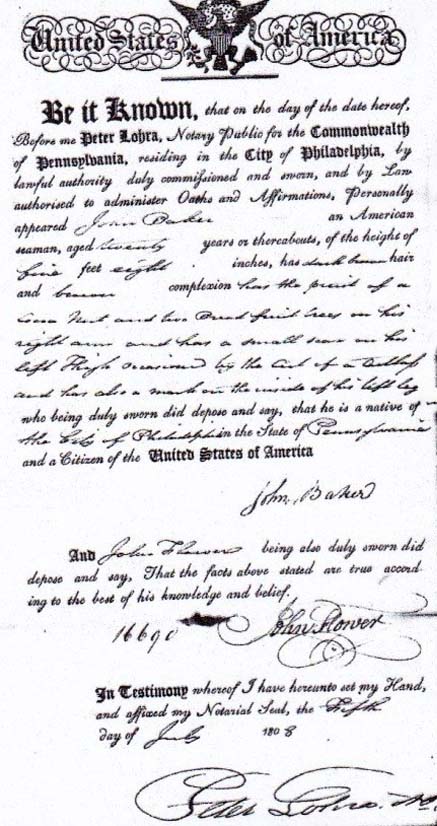 United States of America
Be it Known, that on the day of the date hereof,
Before me Peter Lohra, Notary Public for the Commonwealth
of Pennsylvania, residing in the City of Philadelphia, by
lawful authority duly commissioned and sworn, and by Law
authorised to administer Oaths and Affirmations, Personally
appeared John Baker an American
seaman, aged twenty years or thereabouts, of the height of
five feet eight inches, has dark brown hair
and brown complexion has the print of a
Cocoa Nut and two Bread fruit trees on his
right arm and has a small scar on his
left Thigh occasioned by the Cut of a Cutlass
and has also a mark on the inside of his left leg
who being duly sworn did depose and say, that he is a native of
the City of Philadelphia in the State of Pennsylvania
and a Citizen of the United States of America
John Baker
And John Flower being also duly sworn did
depose and say, That the facts above stated are true accord
ing to the best of his knowledge and belief.
16690 John Flower
In Testimony whereof I have hereunto set my Hand,
and affixed my Notarial Seal, the fifth
day of July 1808
Peter Lohra